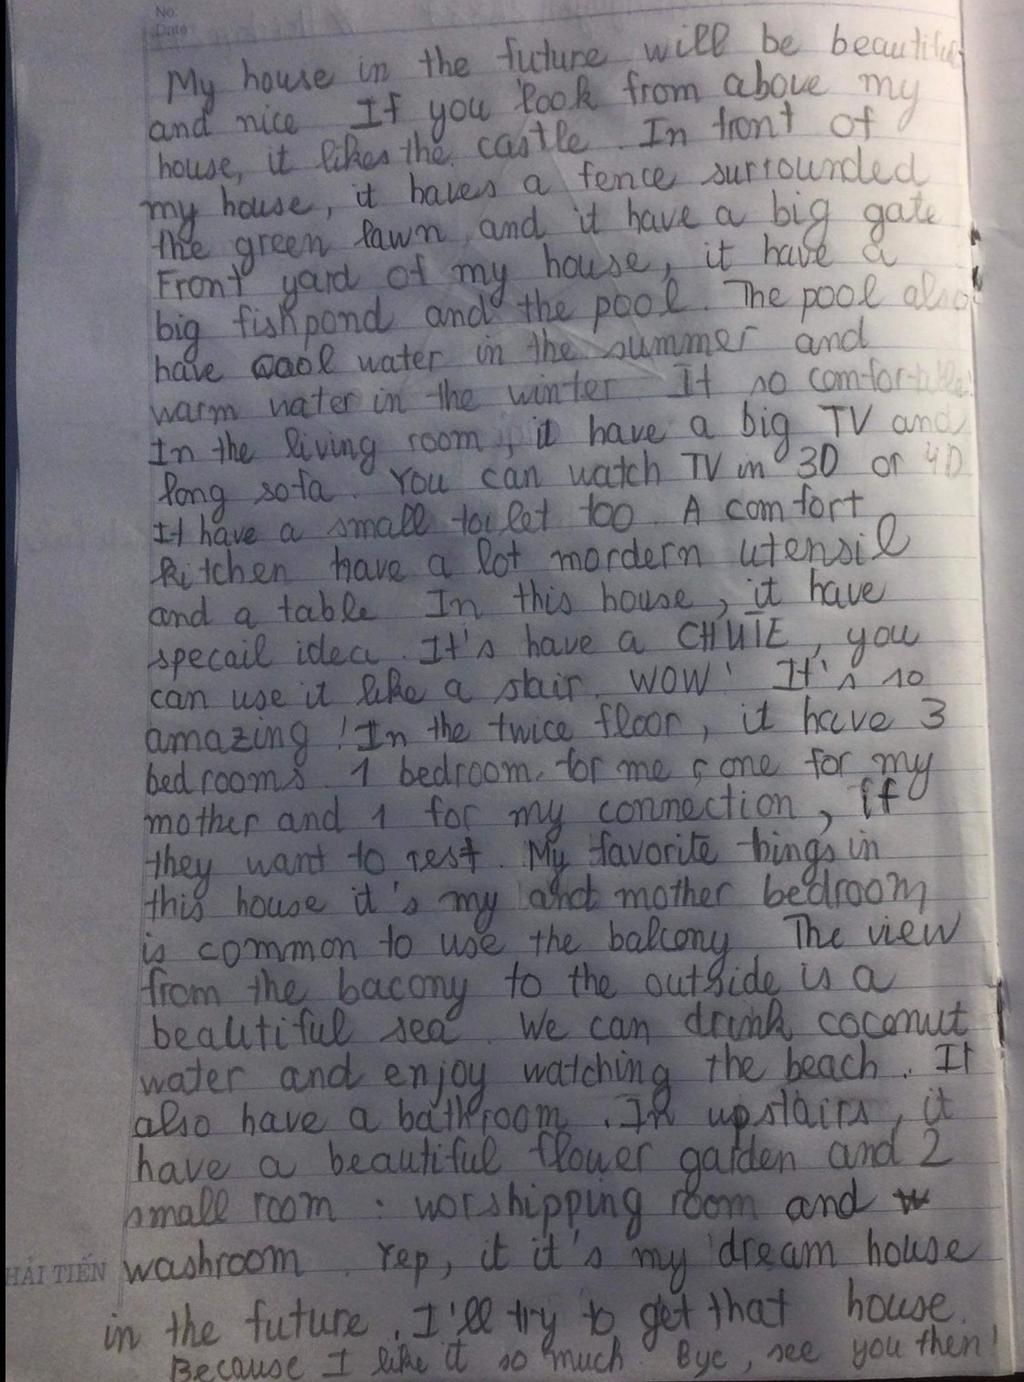 No.
Date
My house in the future will be beautiful
and nice If you look from above my
house, it likes the castle. In front of
my house, it haves a fence surrounded
the green lawn and it have a big gate
Front yard of my house, it have a
big fishpond and the pool. The pool also
have cool water in the summer and
warm water in the winter It so comfortable!
In the living room, it have a big TV and
long sofa. You can watch TV in 3D or 4D
It have a small toilet too. A comfort
kitchen have a lot mordern utensil
and a table In this house, it have
specail idea. It's have a CHUTE, you
can use it like a stair. WOW! It's so
amazing! In the twice floor, it have 3
bedrooms. 1 bedroom for me, one for my
mother and 1 for my connection, if
they want to rest. My favorite things in
this house it's my and mother bedroom
is common to use the balcony The view
from the bacony to the outside is a
beautiful sea. We can drink coconut
water and enjoy watching the beach. It
also have a bathroom. In upstairs, it
have a beautiful flower garden and 2
small room: worshipping room and
washroom. Yep, it it's my dream house
HẢI TIẾN
in the future. I'll try to get that house.
Because I like it so much. Bye, see you then!